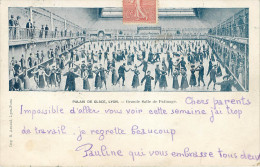 PALAIS DE GLACE, LYON. — Grande Salle de Patinage
Chers parents
Impossible d'aller vous voir cette semaine j'ai trop
de travail. je regrette beaucoup
Pauline qui vous embrasse tous deux